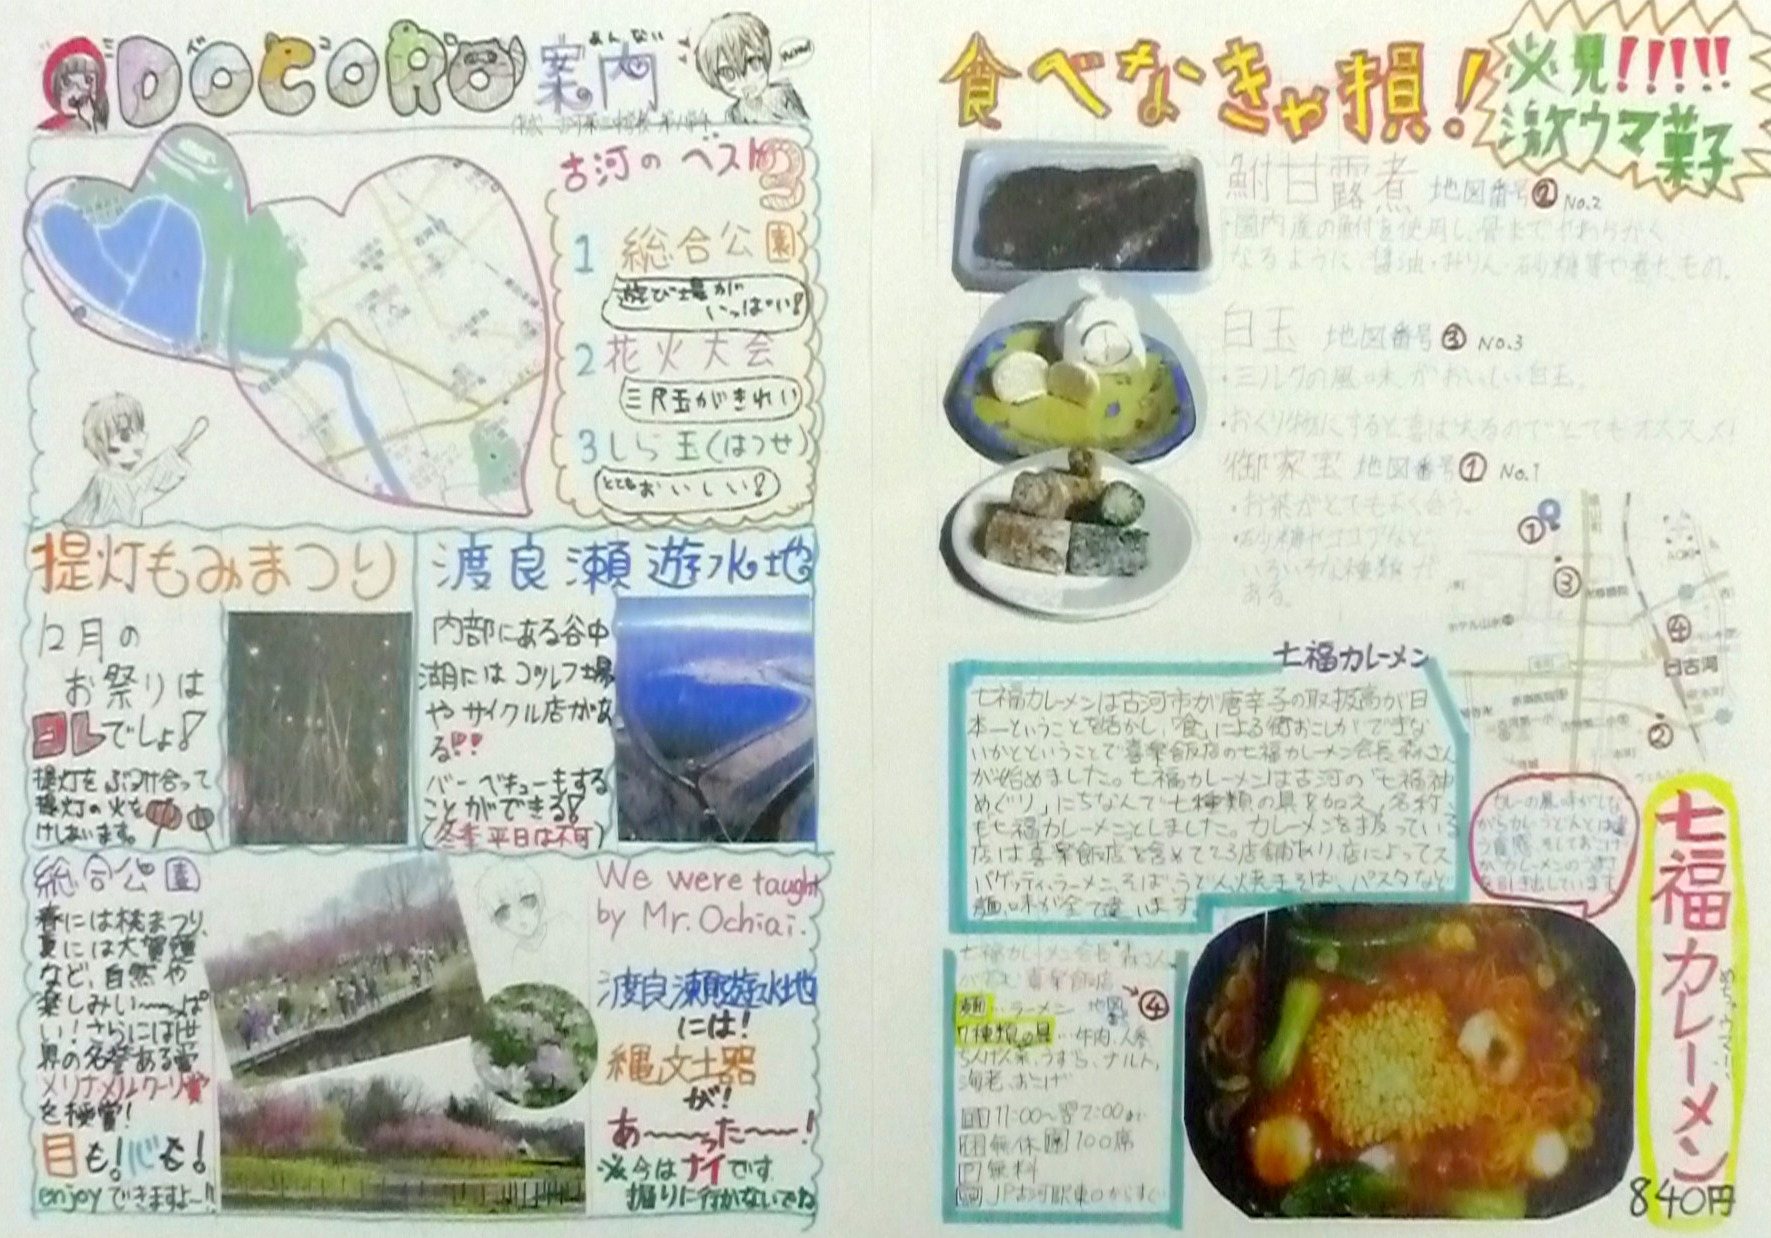 DOCORO案内
あんない
古河のベスト3
1 総合公園
遊び場がいっぱい!
2 花火大会
三尺玉がきれい
3 しら玉(はつせ)
とてもおいしい!
提灯もみまつり
12月の
お祭りは
コレでしょ!
提灯をぶつけ合って
提灯の火を
けしあいます。
渡良瀬遊水地
内部にある谷中
湖にはゴルフ場
やサイクル店があ
る!!
バーベキューもする
ことができる!
(冬季平日は不可)
総合公園
春には桃まつり、
夏には大賀蓮
など、自然や
楽しみい〜っぱ
い!さらには世
界の名誉ある賞
メリナメルクーリ賞
を極賞!
目も!心も!
enjoyできますよ〜!!
We were taught
by Mr. Ochiai.
渡良瀬遊水地
には!
縄文土器
が!
あ〜〜った〜〜!
※今はナイです
掘りに行かないでね
食べなきゃ損!
必見!!!!!
激ウマ菓子
鮒甘露煮 地図番号② No.2
・国内産の鮒を使用し、骨までやわらかく
なるように、醤油・みりん・砂糖等で煮たもの。
白玉 地図番号③ No.3
・ミルクの風味がおいしい白玉。
・おくり物にすると喜ばれるのでとてもオススメ!
御家宝 地図番号① No.1
・お茶がとてもよく合う。
・砂糖やココアなど
いろいろな種類が
ある。
①
③
④
古河
②
七福カレーメン
七福カレーメンは古河市が唐辛子の取扱高が日
本一ということを活かし、「食」による街おこしができな
いかとということで喜楽飯店の七福カレーメン会長 森さん
が始めました。七福カレーメンは古河の「七福神
めぐり」にちなんで七種類の具を加え、名称
も七福カレーメンとしました。カレーメンを扱っている
店は喜楽飯店を含めて23店舗あり、店によってス
パゲッティ、ラーメン、そば、うどん、焼きそば、パスタなど
麺、味が全て違います。
カレーの風味がしな
がらカレーうどんとは違
う食感、そしておこげ
がカレーメンのうまさ
を引き出しています
七福カレーメン会長 森さん
喜楽飯店
麺…ラーメン 地図番号④
7種類の具…牛肉、人参
ちんげん菜、うずら、ナルト、
海老、おこげ
11:00〜翌2:00まで
無休 100席
無料
JR古河駅東口からすぐ
七福カレーメン
めちゃウマー!
840円